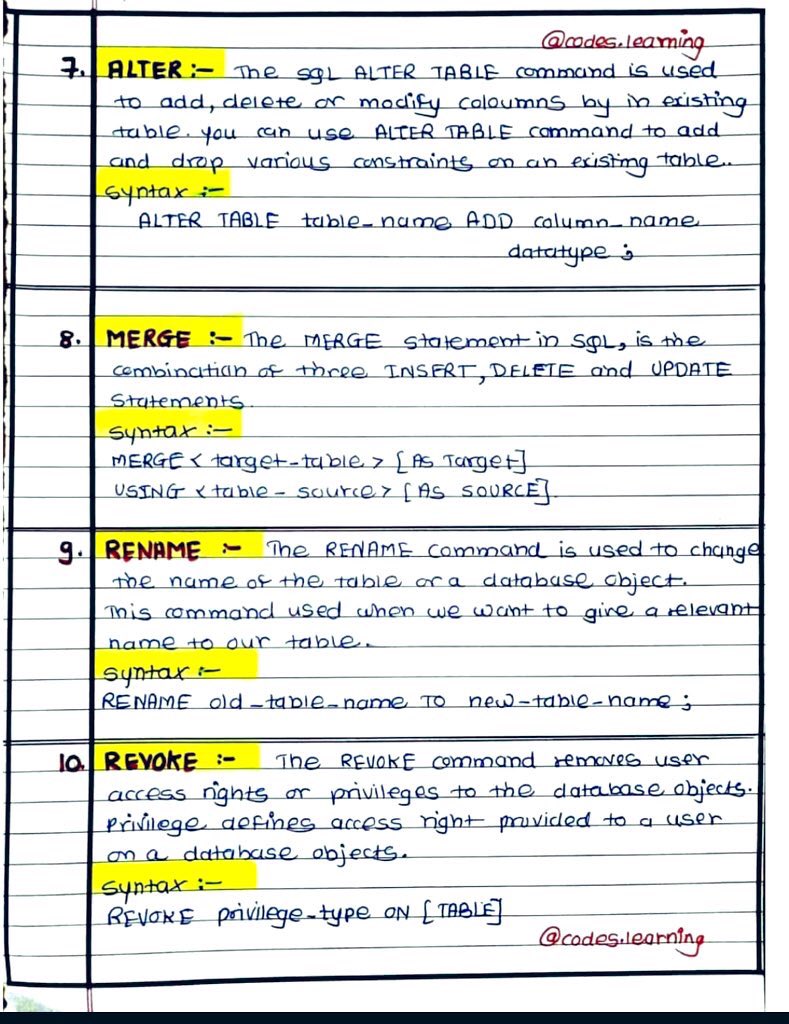 @codes.learning
7. ALTER :- The SQL ALTER TABLE command is used
to add, delete or modify coloumns by in existing
table. you can use ALTER TABLE command to add
and drop various constraints on an existing table..
syntax :-
ALTER TABLE table_name ADD column_name
datatype ;
8. MERGE :- The MERGE statement in SQL, is the
combination of three INSERT, DELETE and UPDATE
statements.
syntax :-
MERGE < target-table > [AS Target]
USING < table - source > [AS SOURCE].
9. RENAME :- The RENAME command is used to change
the name of the table or a database object.
This command used when we want to give a relevant
name to our table.
syntax :-
RENAME old_table_name TO new-table-name ;
10. REVOKE :- The REVOKE command removes user
access rights or privileges to the database objects.
privilege defines access right provided to a user
on a database objects.
syntax :-
REVOKE privilege-type ON [TABLE]
@codes.learning